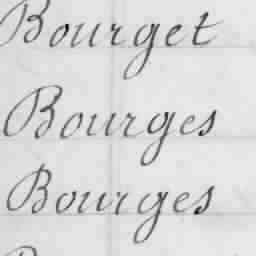 Bourget
Bourges
Bourges